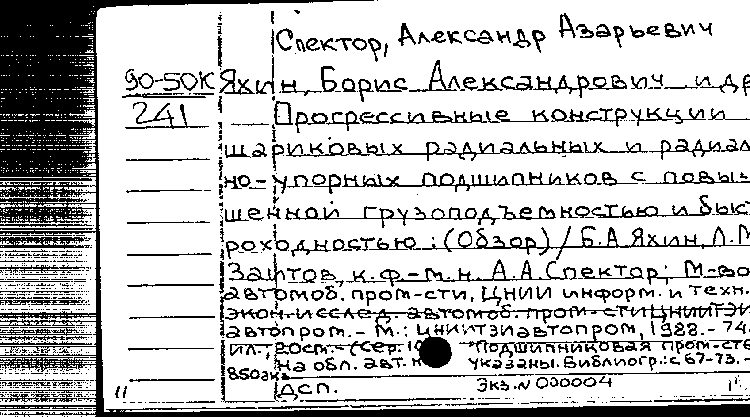 Спектор, Александр Азарьевич
90-50К Яхин, Борис Александрович и др
241 Прогрессивные конструкции
шариковых радиальных и радиал
но-упорных подшипников с повы
шенной грузоподъемностью и быст
роходностью: (Обзор) / Б.А. Яхин, Л.М
к.ф-м.н. А.А. Спектор; М-во
автомоб. пром-сти, ЦНИИ информ. и техн.
экон. исслед. автомоб. пром-сти ЦНИИТЭИ
автопром. - М.: ЦНИИТЭИавтопром, 1988. - 74
ил.; 20см. - (Сер. "Подшипниковая пром-сть
На обл. авт. указаны. Библиогр.: с 67-73. -
850экз
ДСП. Экз. N 000004